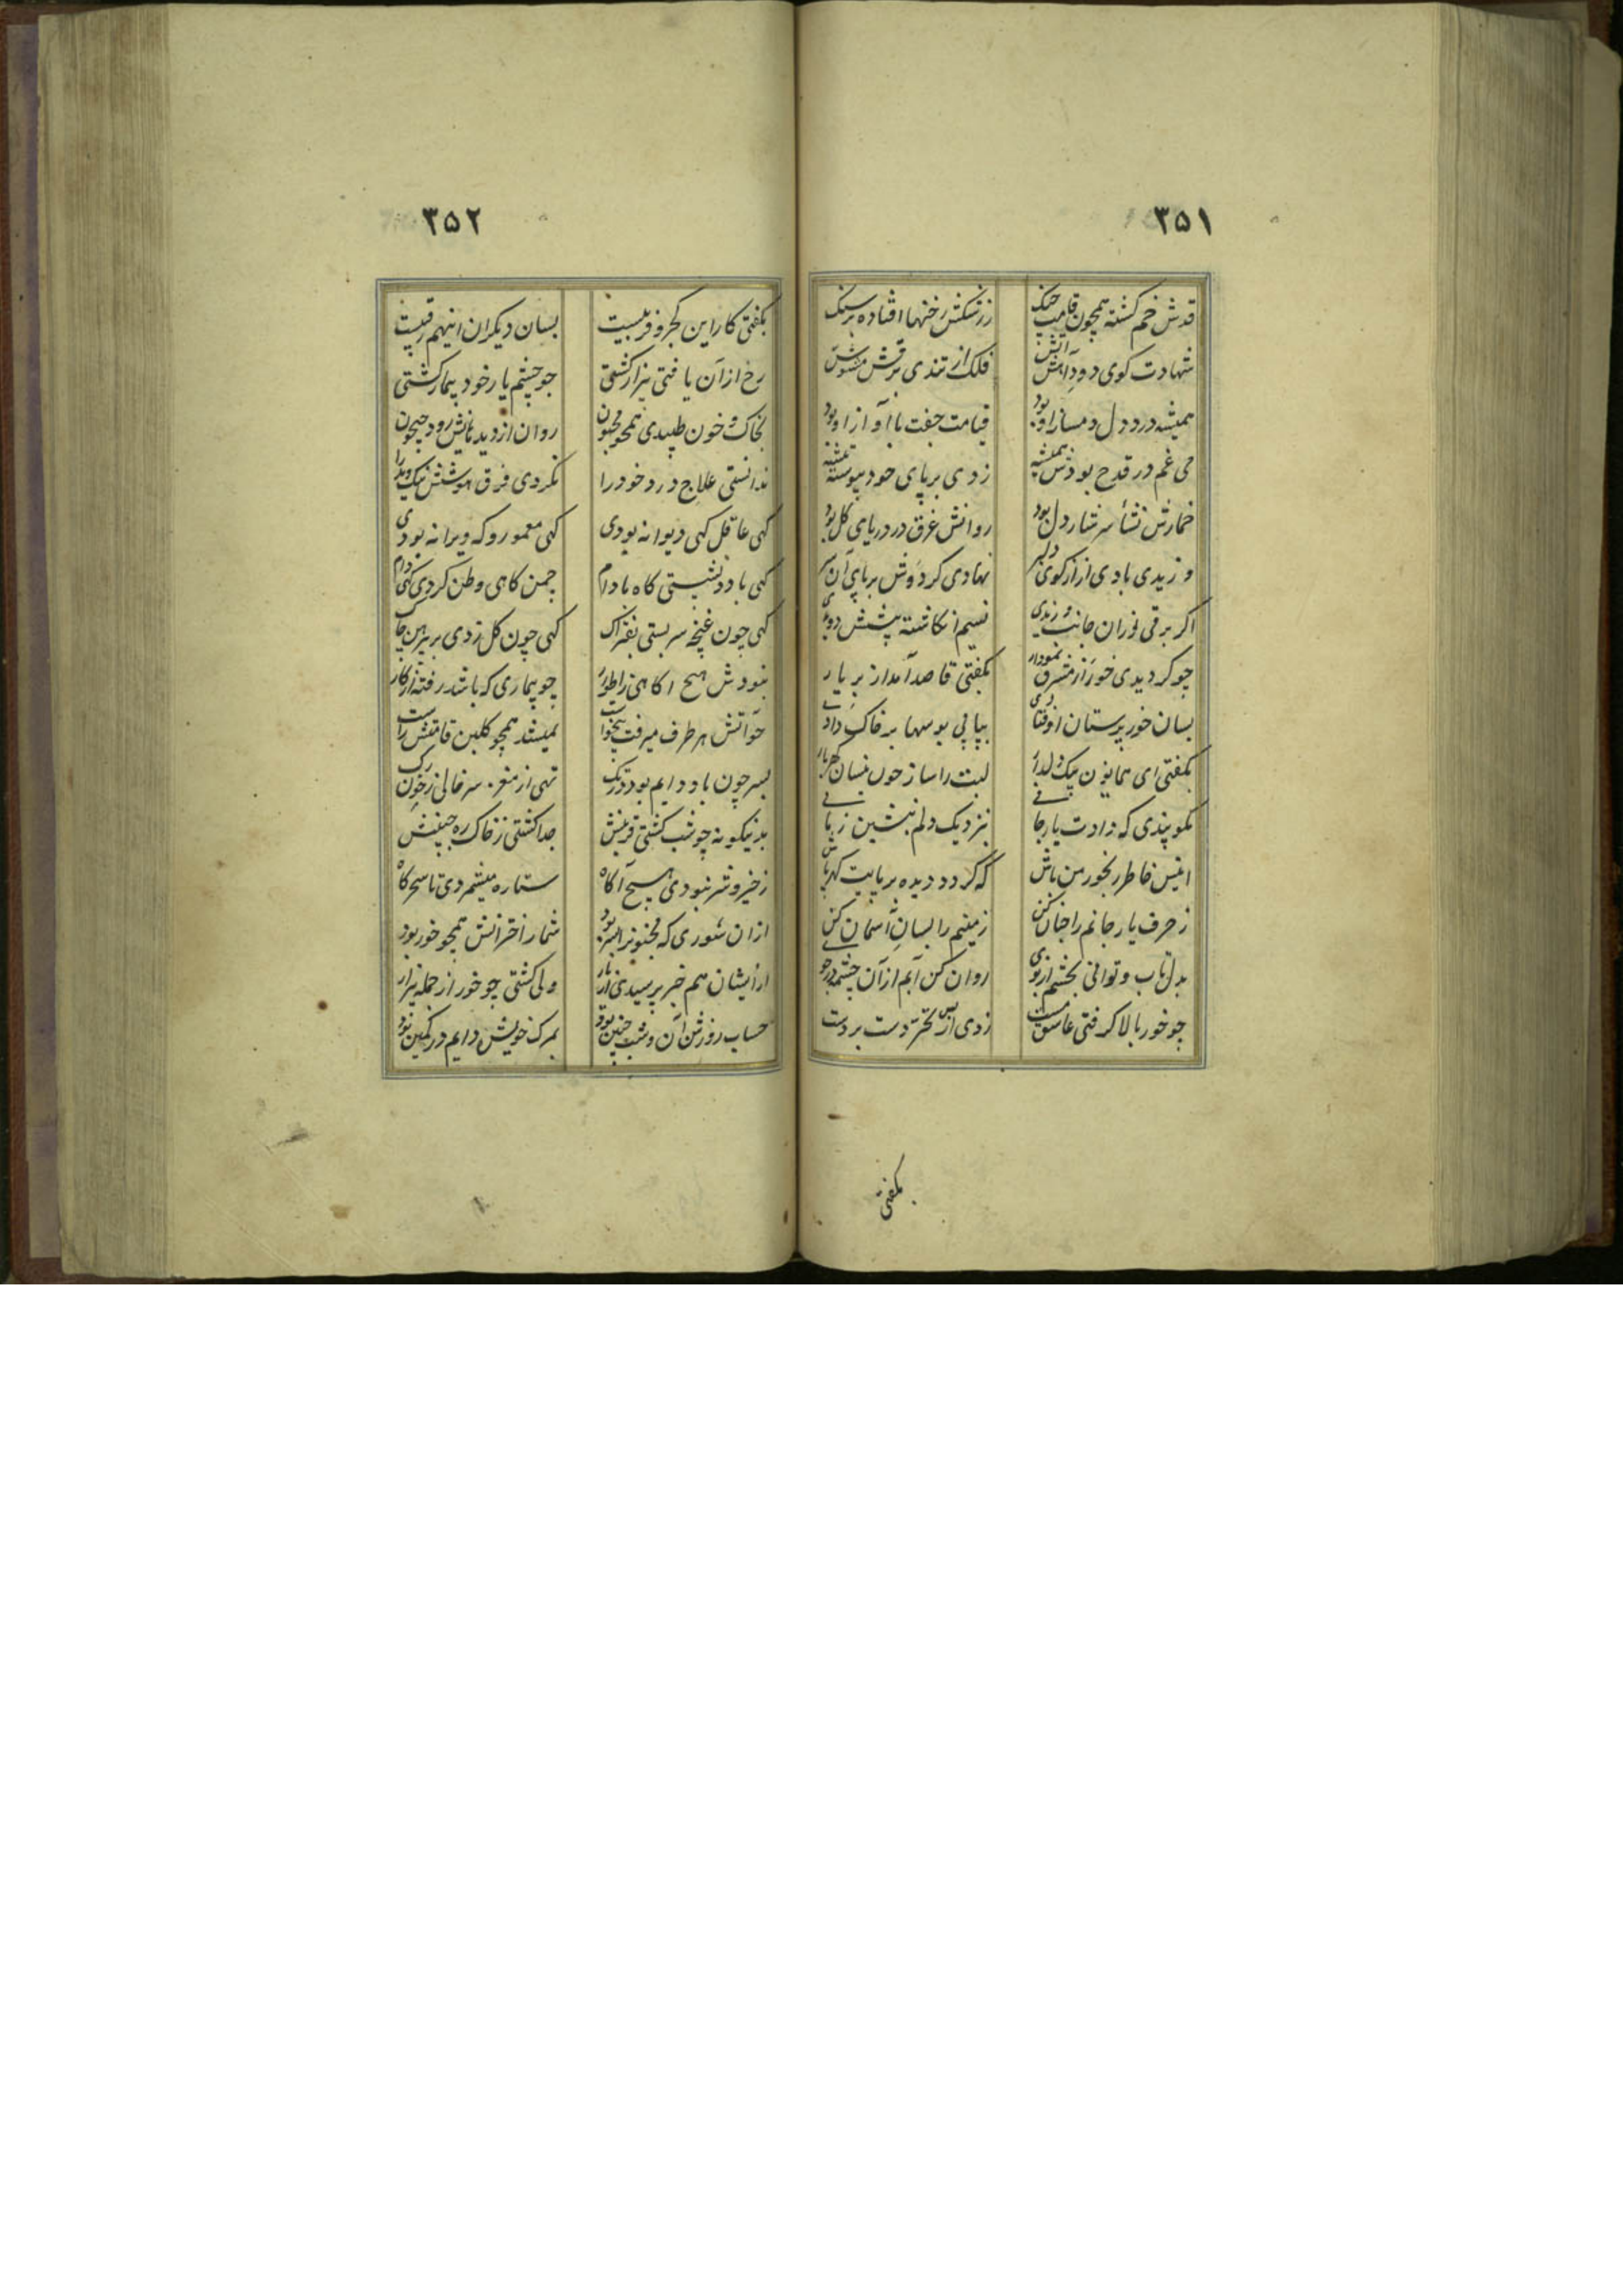 ۳۵۱
قدش خم کشته همچون قامت چنک
ز رشکش رخنها افتاده بر سنک
شهادت کوی دود آتش
فلک از تندی برقش مشوش
همیشه درد دل دمساز او بود
قیامت جفت با آواز او بود
می غم در قدح بودش همیشه
زدی بر پای خود پیوسته تیشه
خمارش نشأ سرشار دل بود
روانش غرق در دریای کل بود
وزیدی بادی ار از کوی دلبر
نهادی کردوش بر پای آن سر
اکر برقی از آن جانب وزیدی
نسیم انکاشته پیشش دویدی
چو کردیدی خور از مشرق نمودار
بکفتی قاصد آمد از بر یار
بسان خور پرستان اوفتادی
پیاپی بوسها بر خاک دادی
بکفتی ای همایون پیک دلدار
لبت را ساز چون نیسان کهربار
بکو پندی که زادت یار جانی
بنزدیک دلم بنشین زمانی
انیس خاطر رنجور من باش
که کردد دیده بر پایت کهرپاش
ز حرف یار جانم را جنان کن
زمینم را بسان آسمان کن
بدل تاب و توانی بخشم از وی
روان کن آبم از آن چشمه در جوی
چو خور بالا کرفتی عاشق مست
زدی از بس تحیر دست بر دست
بکفتی
۳۵۲
بکفتی کار این کجرو فریبست
بسان دیکران اینهم رقیبست
رخ از آن یافتی بیزار کشتی
چو چشم یار خود بیمار کشتی
بخاک و خون طپیدی همچو مجنون
روان از دیدهایش رود جیحون
ندانستی علاج درد خود را
نکردی فرق هوشش نیک و بد را
کهی عاقل کهی دیوانه بودی
کهی معمور و که ویرانه بودی
کهی با دد نشستی کاه با دام
چمن کاهی وطن کردی کهی دام
کهی چون غنچه سر بستی بفتراک
کهی چون کل زدی بر پیرهن چاک
نبودش هیچ آکاهی ز اطوار
چو بیماری که باشد رفته از کار
چو آتش هر طرف میرفت بیخواست
نمیشد همچو کلبن قامتش راست
بسر چون باد دایم بود در تک
تهی از مغز سر خالی ز خون رک
بدینکونه چو شب کشتی قرینش
جدا کشتی ز خاک ره جبینش
ز خیر و شر نبودی هیچ آکاه
ستاره میشمردی تا سحرکاه
از آن شوری که مجنونرا بسر بود
شمار اخترانش همچو خور بود
از ایشان هم خبر پرسیدی از یار
ولی کشتی چو خور از جمله بیزار
حساب روزش آن و شب چنین بود
بمرک خویش دایم در کمین بود